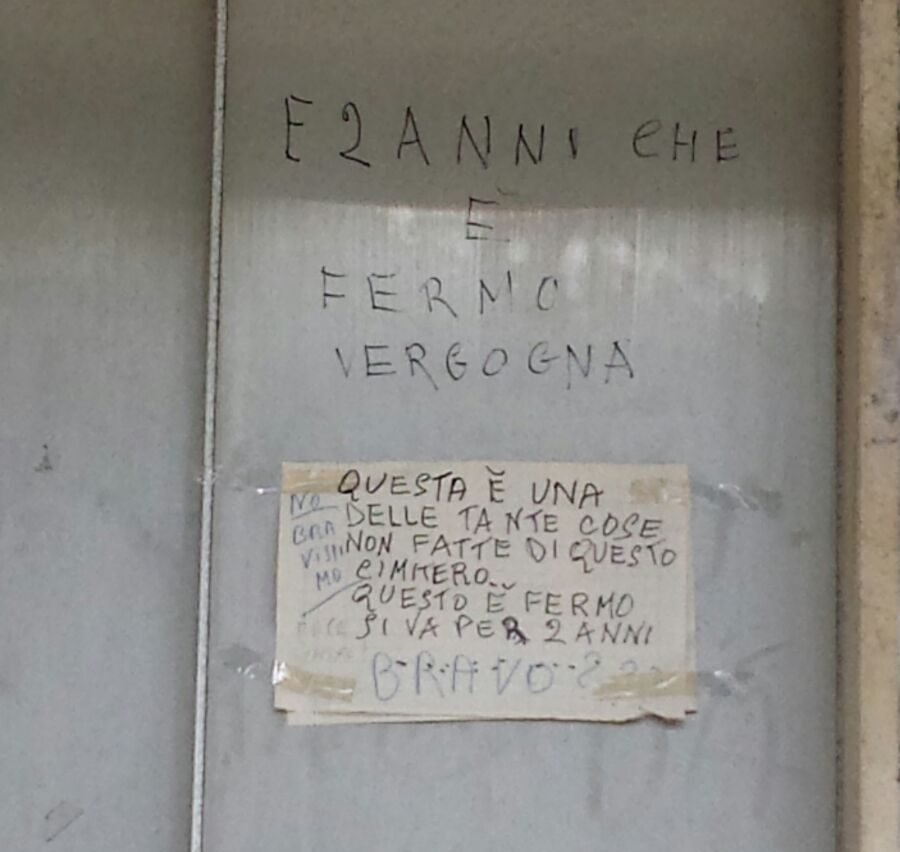 E 2 ANNI CHE
È
FERMO
VERGOGNA
QUESTA È UNA
DELLE TANTE COSE
NON FATTE DI QUESTO
CIMITERO..
QUESTO È FERMO
SI VA PER 2 ANNI
B.R.A.VO..?
NO
BRA
VISSI
MO